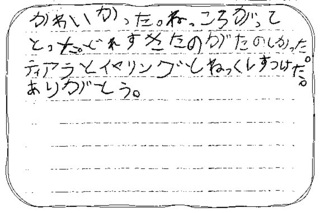 かわいかった。ねっころがって
とった。どれすきたのがたのしかった。
ティアラとイヤリングとねっくレすつけた。
ありがとう。